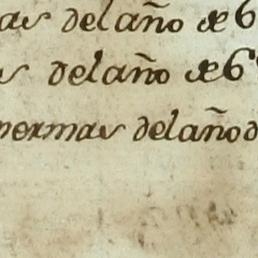 as del año de 6
s del año de 6
ermas del año d